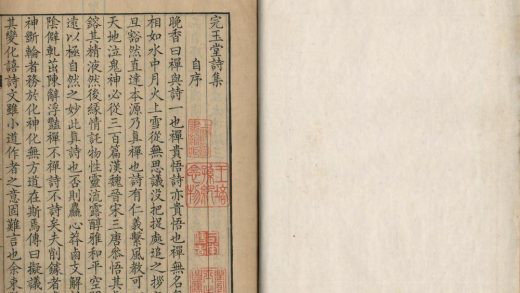 完玉堂詩集
自序
晚香曰禪與詩一也禪貴悟詩亦貴悟也禪無名
相如水中月火上雪從無思議沒把捉處追之拶
旦豁然直達本源乃真禪也詩有仁義繫風教可
天地泣鬼神必從三百篇漢魏晉宋三唐參悟其
鎔其精液然後緣情託物性靈流露醇雅和平空
遠以極自然之妙此真詩也否則麤心莽鹵文解
陰僻軋茁陳解浮豔禪不禪詩不詩矣夫削鐻者
神斲輪者務於化神化無方道在斯焉傳曰擬議
其變化語詩文雖小道作者之意固難言也余束